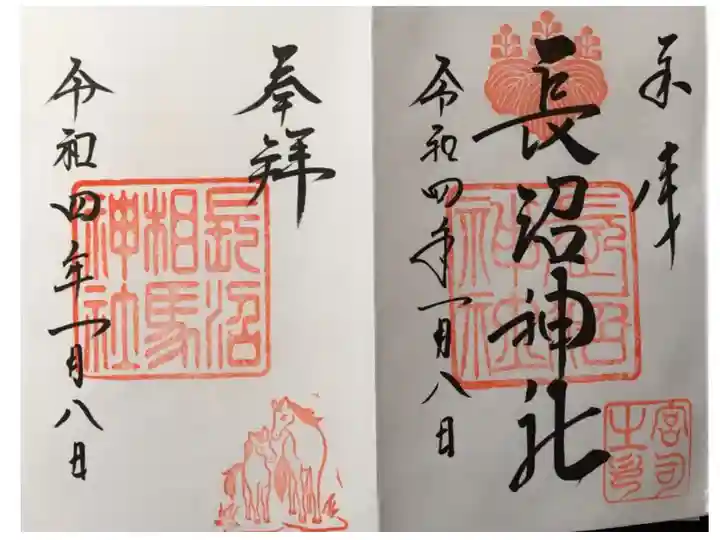 奉拝
長沼神社
長沼
神社
宮司
之印
令和四年一月八日
奉拝
長沼
相馬
神社
令和四年一月八日